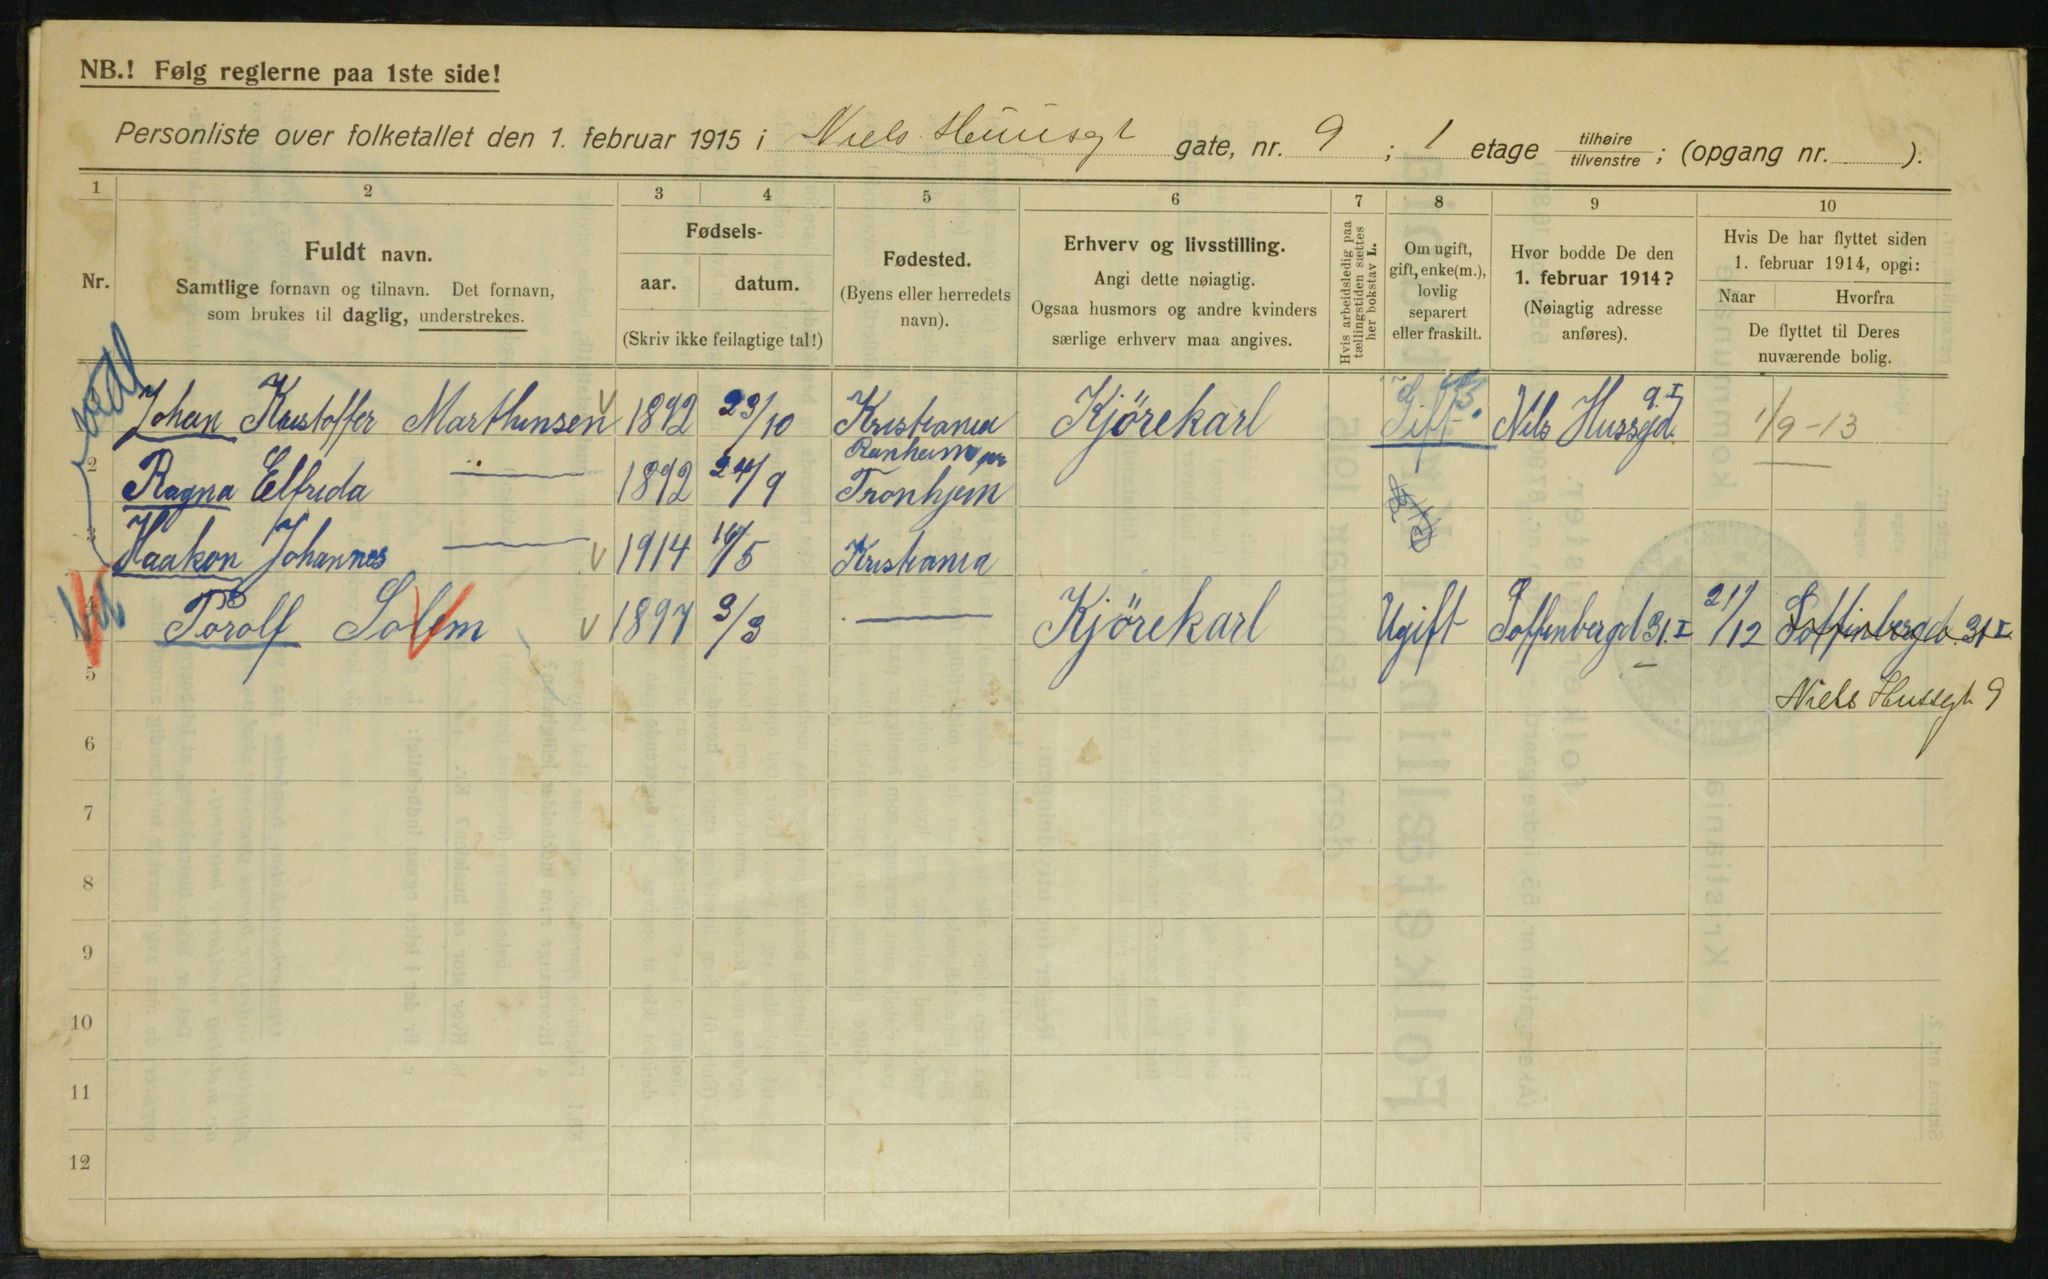 NB.! Følg reglerne paa 1ste side!
Personliste over folketallet den 1. februar 1915 i Niels Huusgt gate, nr. 9 ; 1 etage tilhøire tilvenstre ; (opgang nr. ).
1 2 3 4 5 6 7 8 9 10
Nr.
Fuldt navn.
Samtlige fornavn og tilnavn. Det fornavn,
som brukes til daglig, understrekes.
Fødsels-
aar. datum.
(Skriv ikke feilagtige tal!)
Fødested.
(Byens eller herredets
navn).
Erhverv og livsstilling.
Angi dette nøiagtig.
Ogsaa husmors og andre kvinders
særlige erhverv maa angives.
Hvis arbeidsledig paa
tællingstiden sættes
her bokstav L.
Om ugift,
gift, enke(m.),
lovlig
separert
eller fraskilt.
Hvor bodde De den
1. februar 1914?
(Nøiagtig adresse
anføres).
Hvis De har flyttet siden
1. februar 1914, opgi:
Naar Hvorfra
De flyttet til Deres
nuværende bolig.
Johan Kristoffer Marthinsen 1892 23/10 Kristiania Kjørekarl Gift Nils Hussgd. 9.I 1/9-13
2 Ragna Elfrida — 1892 24/9 Ranheim pr Tronhjem
3 Haakon Johannes — 1914 16/5 Kristiania
4 Torolf Solem 1897 3/3 — Kjørekarl Ugift Toffenbergd 31.I 21/12 Toffinbergd. 31 I.
5 Niels Hussgt 9
6
7
8
9
10
11
12